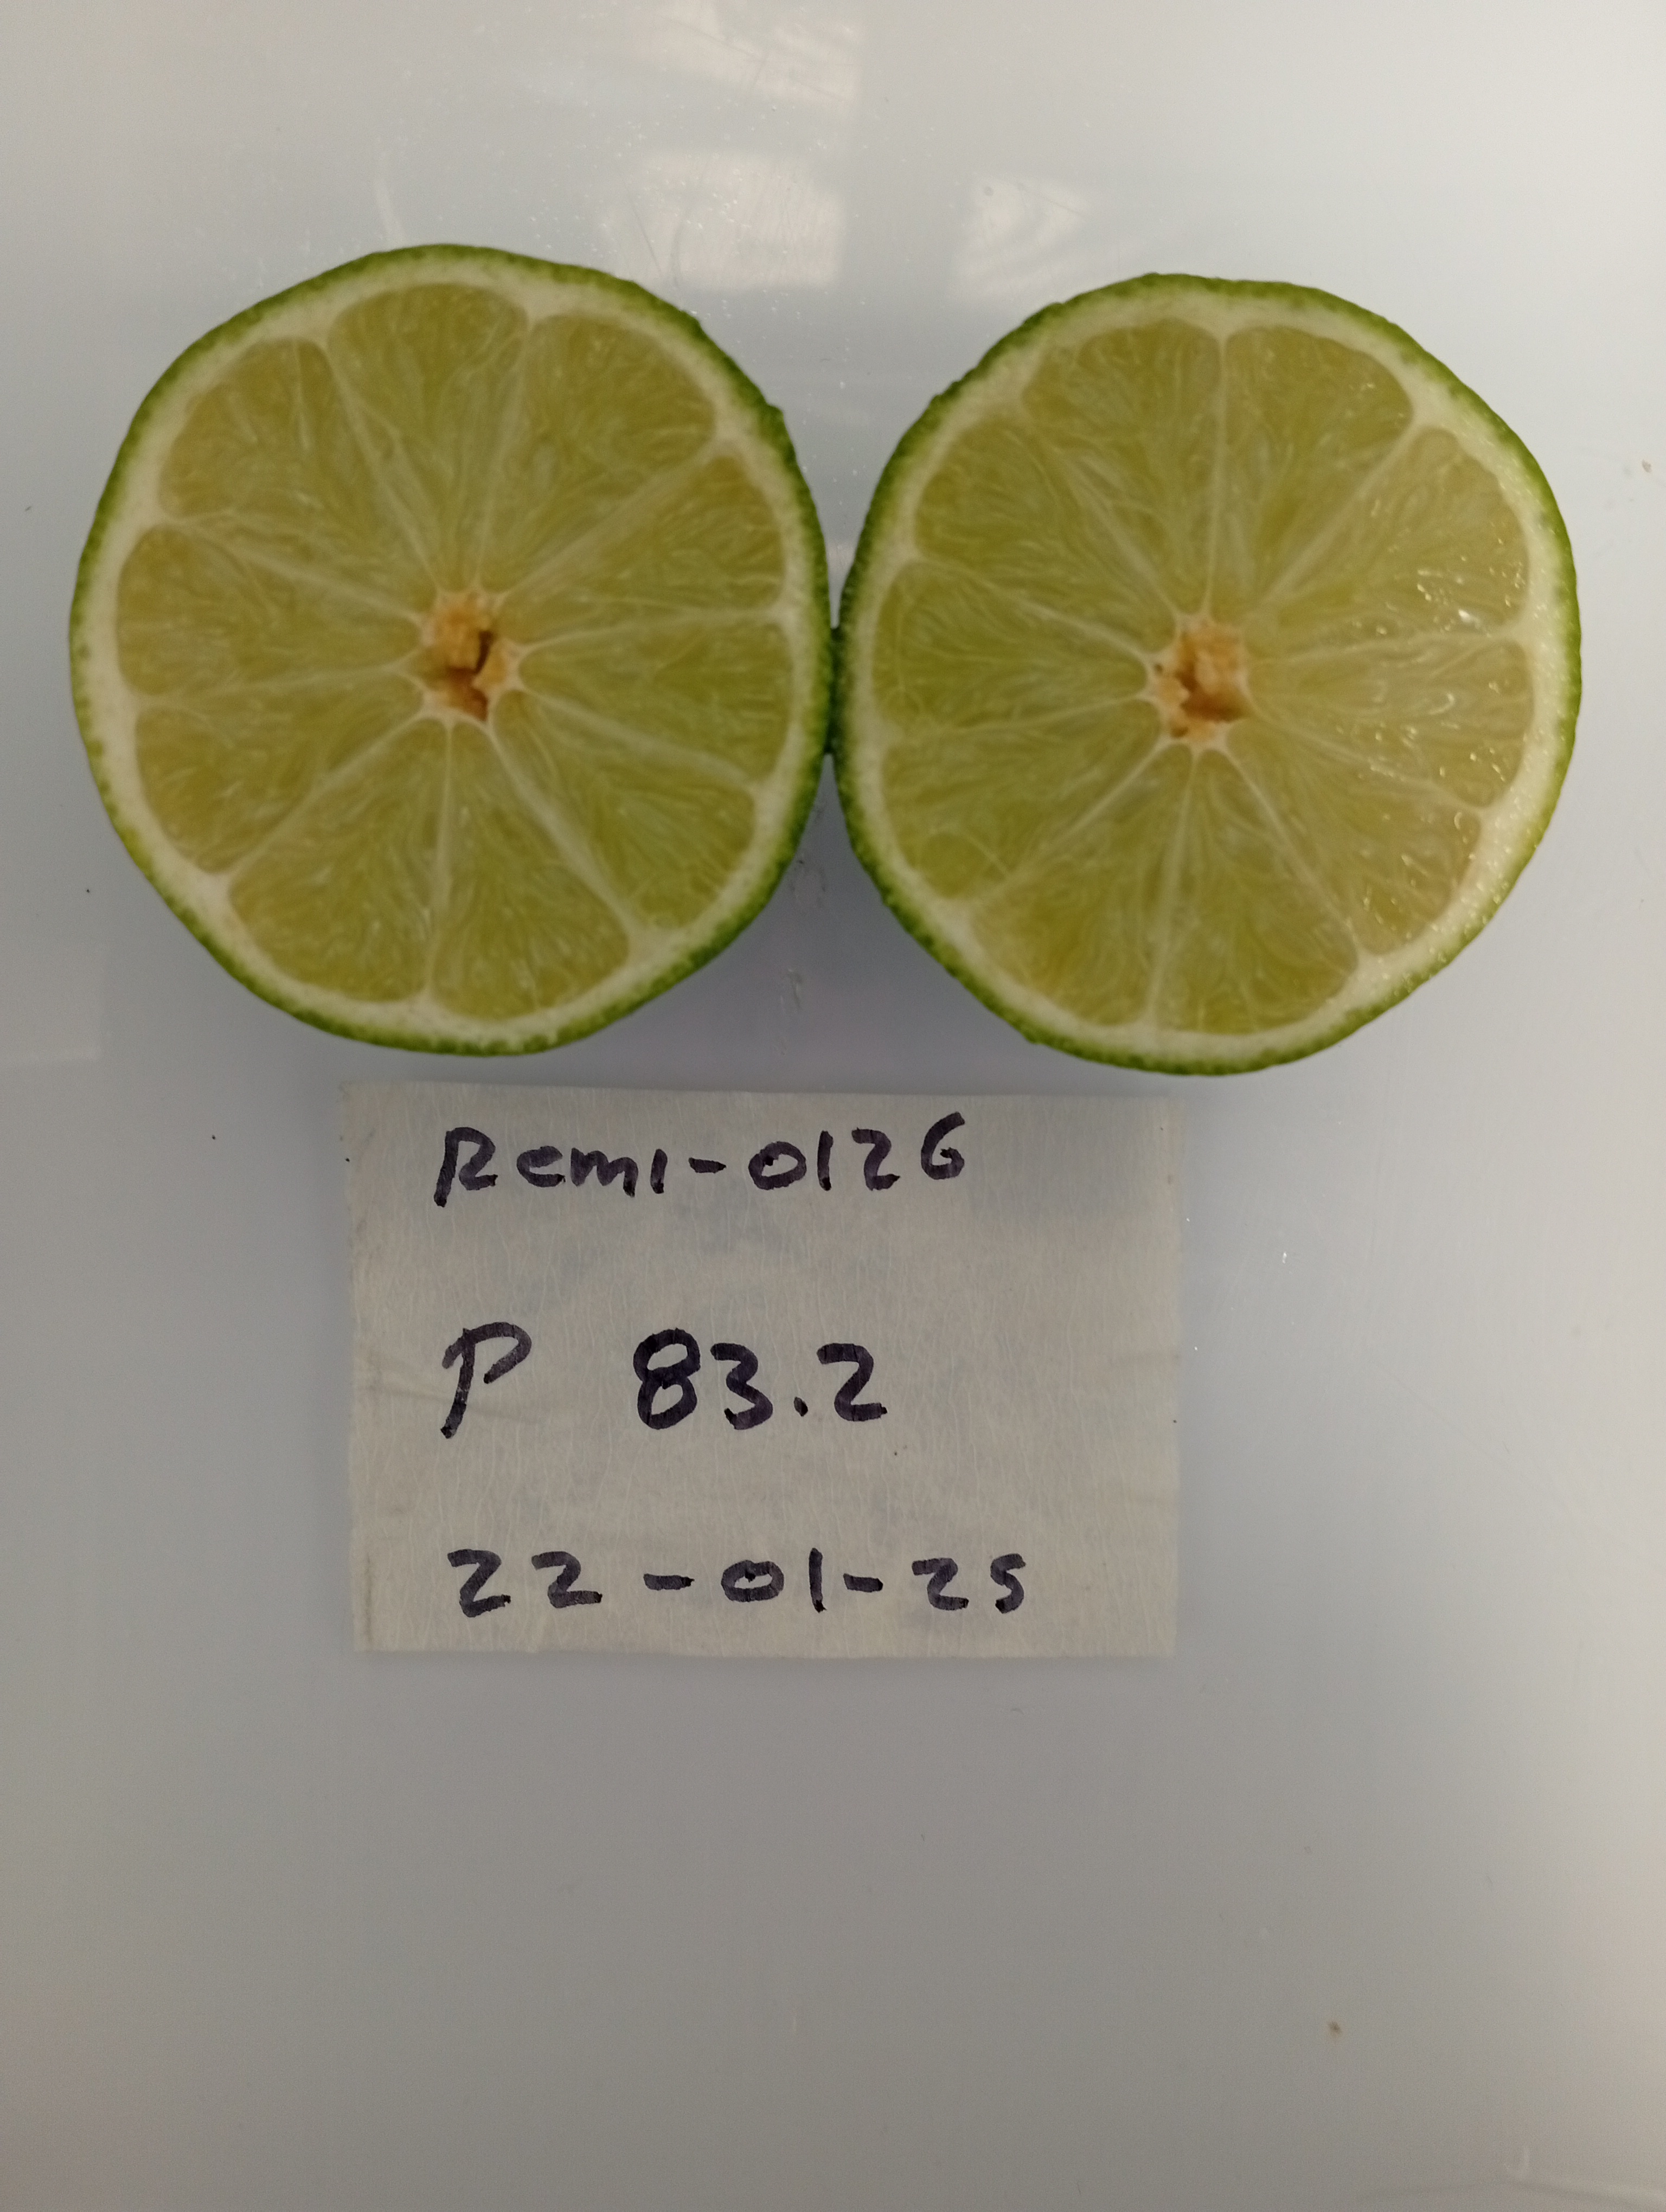 Remi-0126
P 83.2
22-01-25